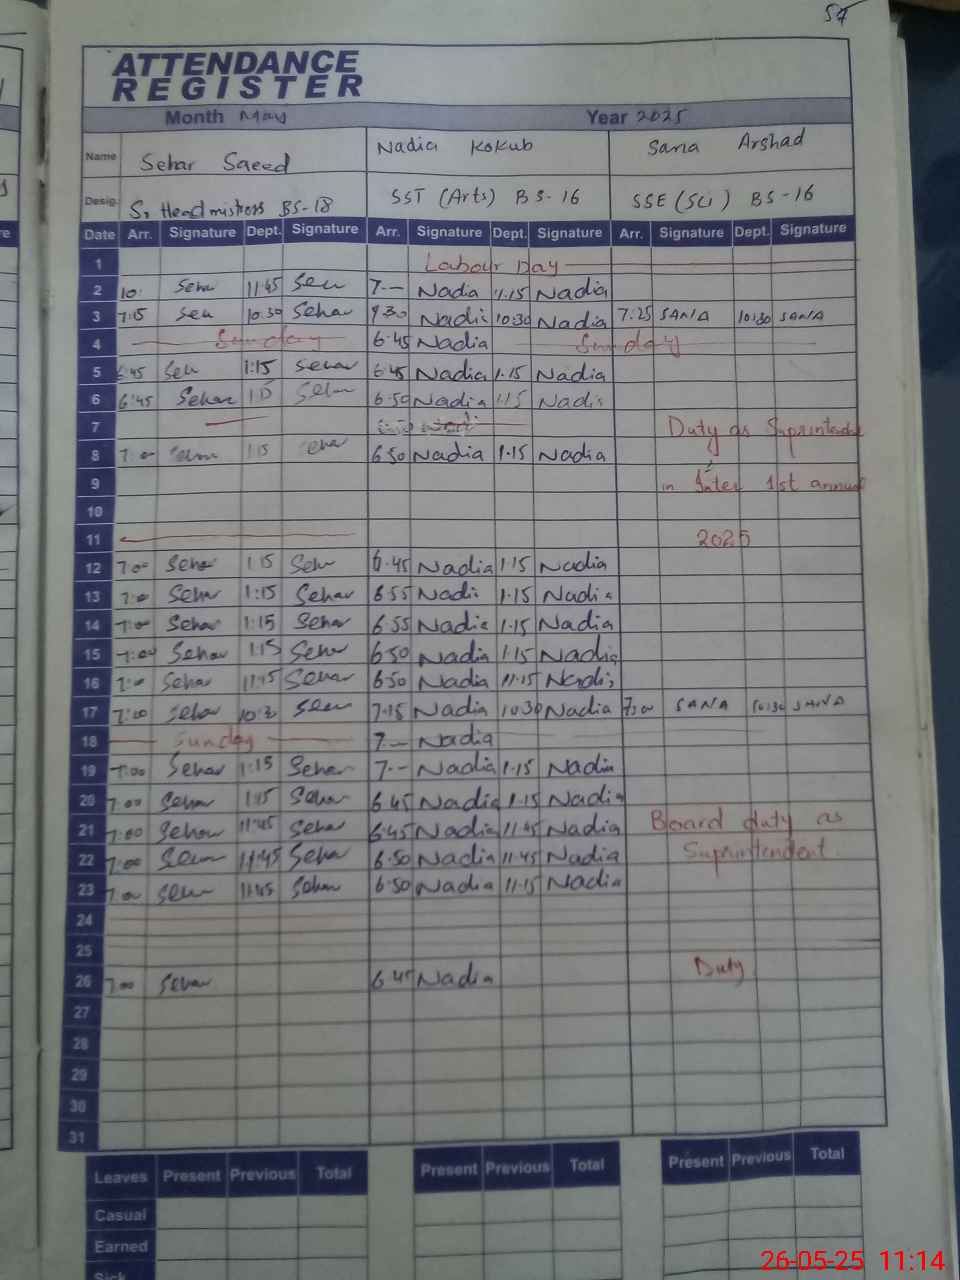 54
ATTENDANCE
REGISTER
Month May Year 2025
Name Sehar Saeed Nadia Kokub Sana Arshad
Desig. Sr Headmistress BS-18 SST (Arts) BS-16 SSE (Sci) BS-16
Date Arr. Signature Dept. Signature Arr. Signature Dept. Signature Arr. Signature Dept. Signature
1 Labour Day
2 10: Sehar 11:45 7-- Nadia 11.15 Nadia
3 7:15 10:30 Sehar 7 30 Nadia 10:30 Nadia 7:25 SANIA 10:30 SANIA
4 Sunday 6.45 Nadia Sunday
5 6:45 1:15 Sehar 6.45 Nadia 1.15 Nadia
6 6:45 Sehar 1:15 Sehar 6.50 Nadia 1:15 Nadia
7 Duty as Suprintendent
8 7:00 1:15 Sehar 6 50 Nadia 1.15 Nadia
9 in Inter 1st annual
10
11 2025
12 7:00 Sehar 1:15 Sehar 6.45 Nadia 1.15 Nadia
13 7:00 Sehar 1:15 Sehar 6 55 Nadia 1.15 Nadia
14 7:00 Sehar 1:15 Sehar 6 55 Nadia 1.15 Nadia
15 7:00 Sehar 1:15 Sehar 6 50 Nadia 1.15 Nadia
16 7:00 Sehar 11:15 Sehar 6 50 Nadia 11.15 Nadia
17 7:00 Sehar 10:30 7.15 Nadia 10:30 Nadia 7:00 SANIA 10:30 SANIA
18 Sunday 7-- Nadia
19 7:00 Sehar 1:15 Sehar 7-- Nadia 1.15 Nadia
20 7:00 Sehar 1:15 Sehar 6 45 Nadia 1.15 Nadia
21 7:00 Sehar 11:45 Sehar 6.45 Nadia 11.45 Nadia Board duty as
22 7:00 Sehar 11:45 Sehar 6.50 Nadia 11.45 Nadia Suprintendent.
23 7:00 11:45 Sehar 6.50 Nadia 11.15 Nadia
24
25
26 7:00 Sehar 6 45 Nadia Duty
27
28
29
30
31
Leaves Present Previous Total Present Previous Total Present Previous Total
Casual
Earned
Sick
26-05-25 11:14